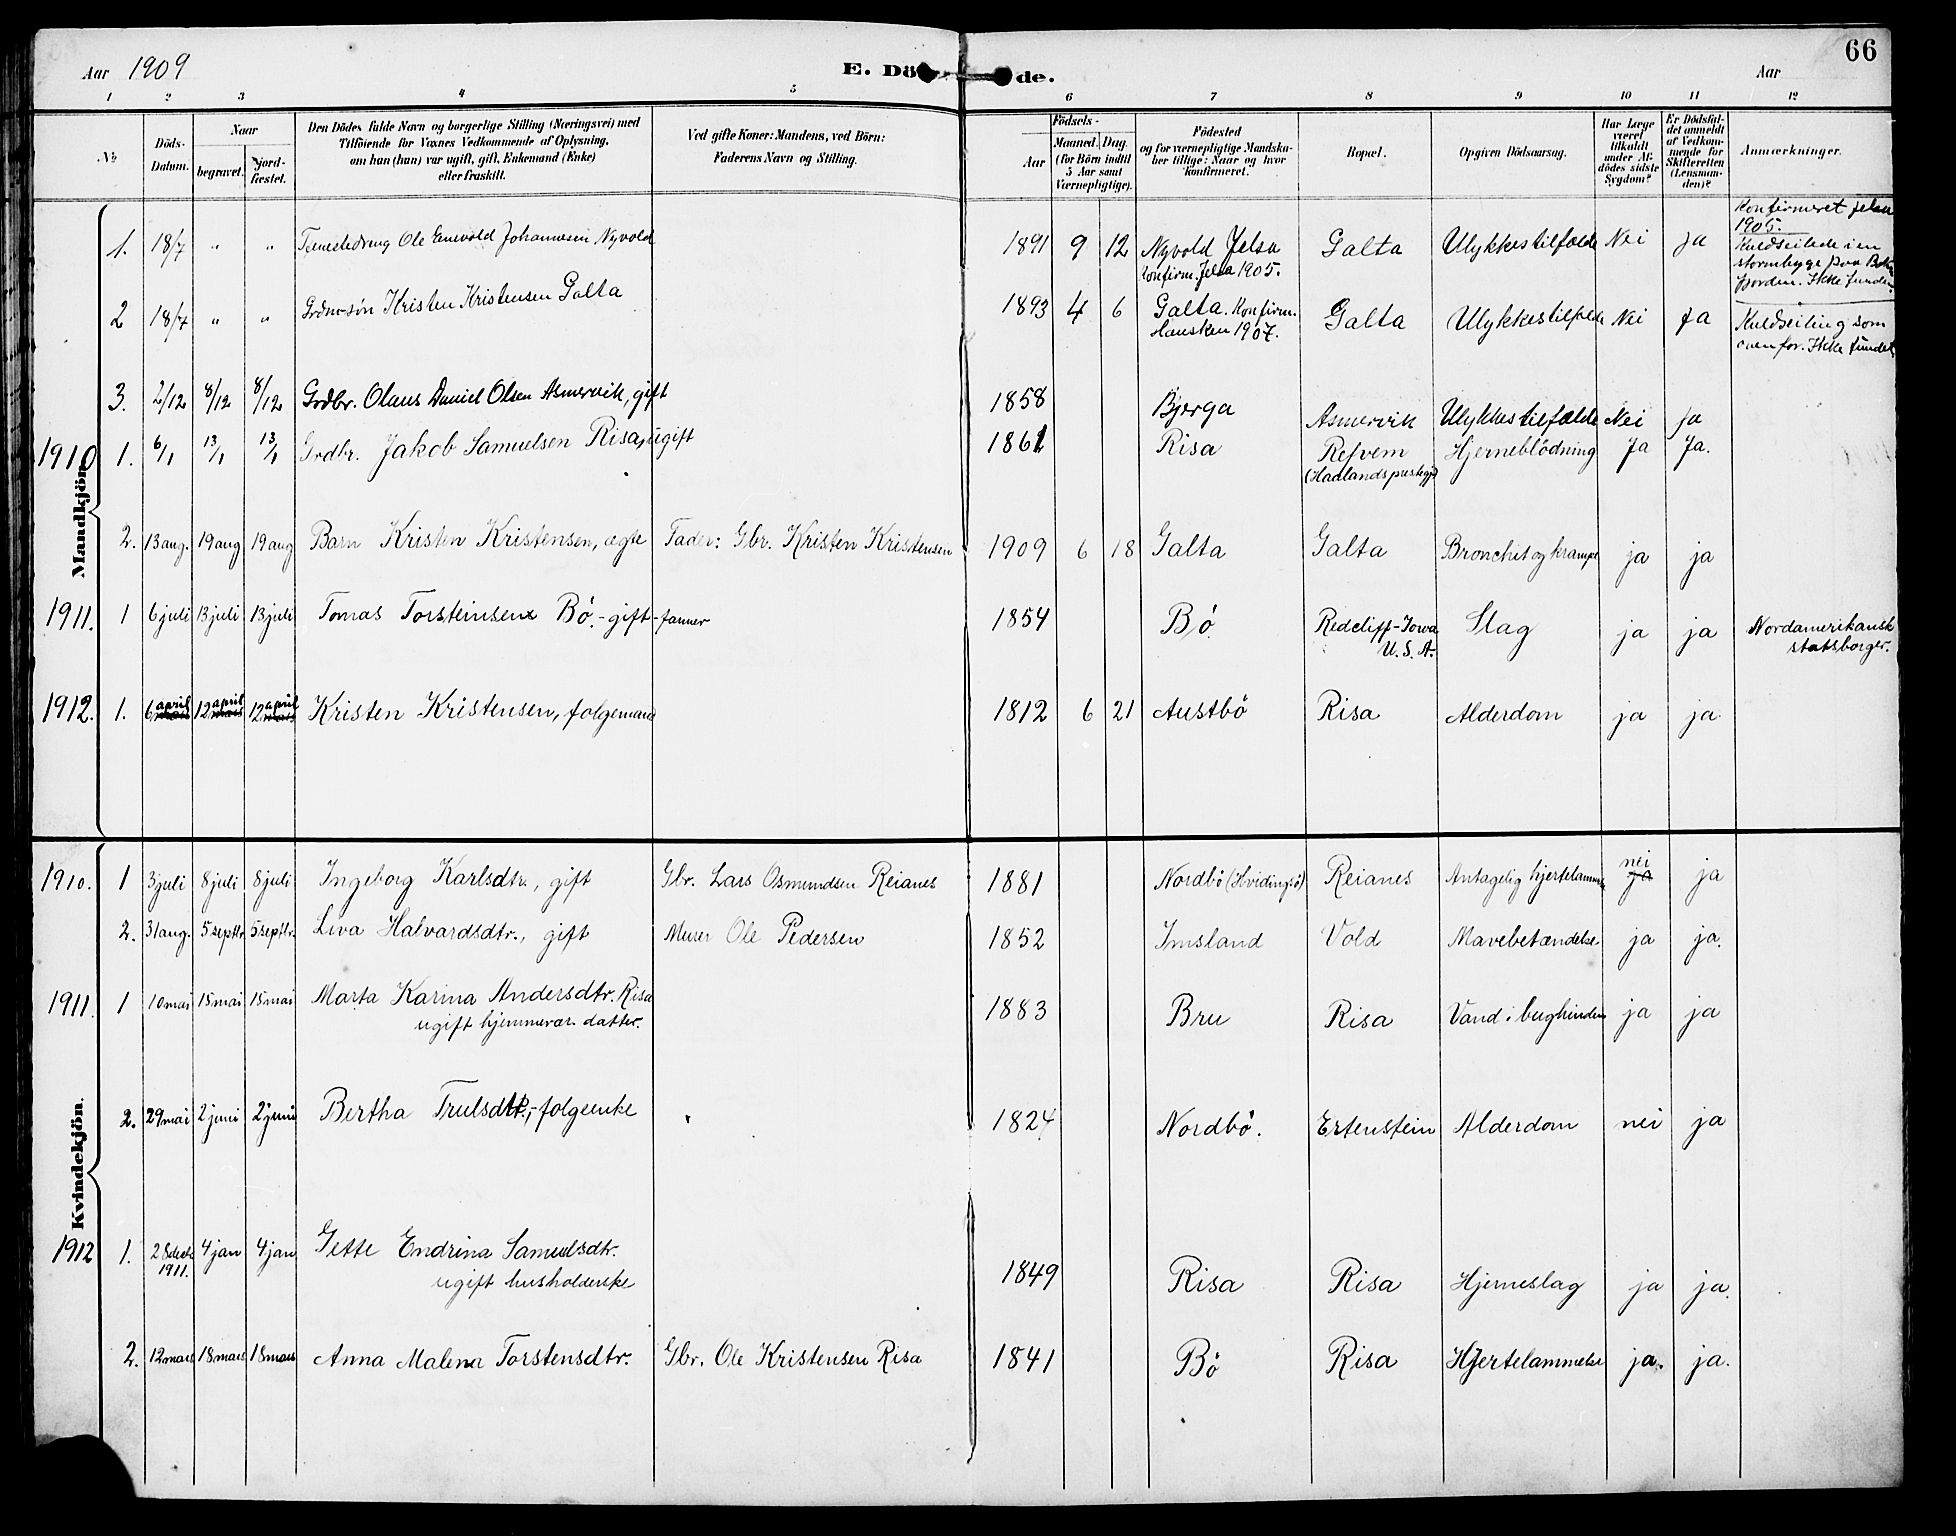 Aar 1909
E. Dö de.
Aar
66
1 2 3 4 5 6 7 8 9 10 11 12
No
Döds-Datum.
Naar
begravet.
jord-fæstet.
Den Dödes fulde Navn og borgerlige Stilling (Næringsvei) med
Tilföiende for Voxnes Vedkommende af Oplysning,
om han (hun) var ugift, gift, Enkemand (Enke)
eller fraskilt.
Ved gifte Koner: Mandens, ved Börn:
Faderens Navn og Stilling.
Födsels-
Aar
Maaned. Dag.
(for Börn indtil
5 Aar samt
Værnepligtige).
Födested
og for værnepligtige Mandska-
ber tillige: Naar og hvor
konfirmeret.
Bopæl.
Opgiven Dödsaarsag.
Har Læge
været
tilkaldt
under Af-
dödes sidste
Sygdom?
Er Dödsfal-
det anmeldt
af Vedkom-
mende for
Skifteretten
(Lensman-
den)?
Anmærkninger.
Mandkjön.
1. 18/7 " " Tjenestedreng Ole Enevold Johannesen Nyvold 1891 9 12 Nyvold Jelsa Galta Ulykkestilfælde Nei ja
konfirm. Jelsa 1905.
Konfirmeret Jelsa
1905.
Kuldseilede i en
stormbyge paa Bokn
fjorden. Ikke funden.
2 18/7 " " Grdm-søn Kristen Kristensen Galta 1893 4 6 Galta. Konfirm. Galta Ulykkestilfælde Nei ja
1907.
Kuldseiling som
ovenfor. Ikke fundet
3. 2/12 8/12 8/12 Grdbr. Olaus Daniel Olsen Asmervik, gift 1858 Bjerga Asmervik Ulykkestilfælde Nei ja
1910 1. 6/1 13/1 13/1 Grdbr. Jakob Samuelsen Risa, ugift 1861 Risa Refvem Hjerneblödning Ja Ja.
2. 13 aug. 19 aug 19 aug Barn Kristen Kristensen, ægte Fader: Gbr. Kristen Kristensen 1909 6 18 Galta Galta Bronchit og krampe ja ja
1911. 1 6 juli 13 juli 13 juli Tomas Torsteinsen Bö. - gift - farmer 1854 Bö Redcliff-Iowa Slag ja ja Nordamerikansk
U.S.A. statsborger.
1912. 1. 6 april 12 april 12 april Kristen Kristensen, folgemand 1812 6 21 Austbö Risa Alderdom ja ja.
Kvindekjön.
1910. 1 3 juli 8 juli 8 juli Ingeborg Karlsdtr., gift Gbr. Lars Osmundsen Reianes 1881 Nordbö (Hvidingsö) Reianes Antagelig hjertelammelse nei ja ja
2. 31 aug. 5 septbr. 5 septbr. Liva Halvardsdtr., gift Murer Ole Pedersen 1852 Imsland Vold Mavebetændelse ja ja.
1911. 1 10 mai 15 mai 15 mai Marta Karina Andersdtr. Risa 1883 Bru Risa Vand i bughinden ja ja
ugift hjemmevær. datter.
2. 29 mai 2 juni 2 juni Bertha Trulsdtr, - folgeenke 1824 Nordbö. Ertenstein Alderdom nei ja
1912 1. 28 decbr 4 jan 4 jan Gette Endrina Samuelsdtr. 1849 Risa Risa Hjerneslag ja ja.
1911. ugift husholderske
2. 12 mars 18 mars 18 mars Anna Malena Torstensdtr. Gbr. Ole Kristensen Risa 1841 Bö Risa Hjertelammelse ja. ja.